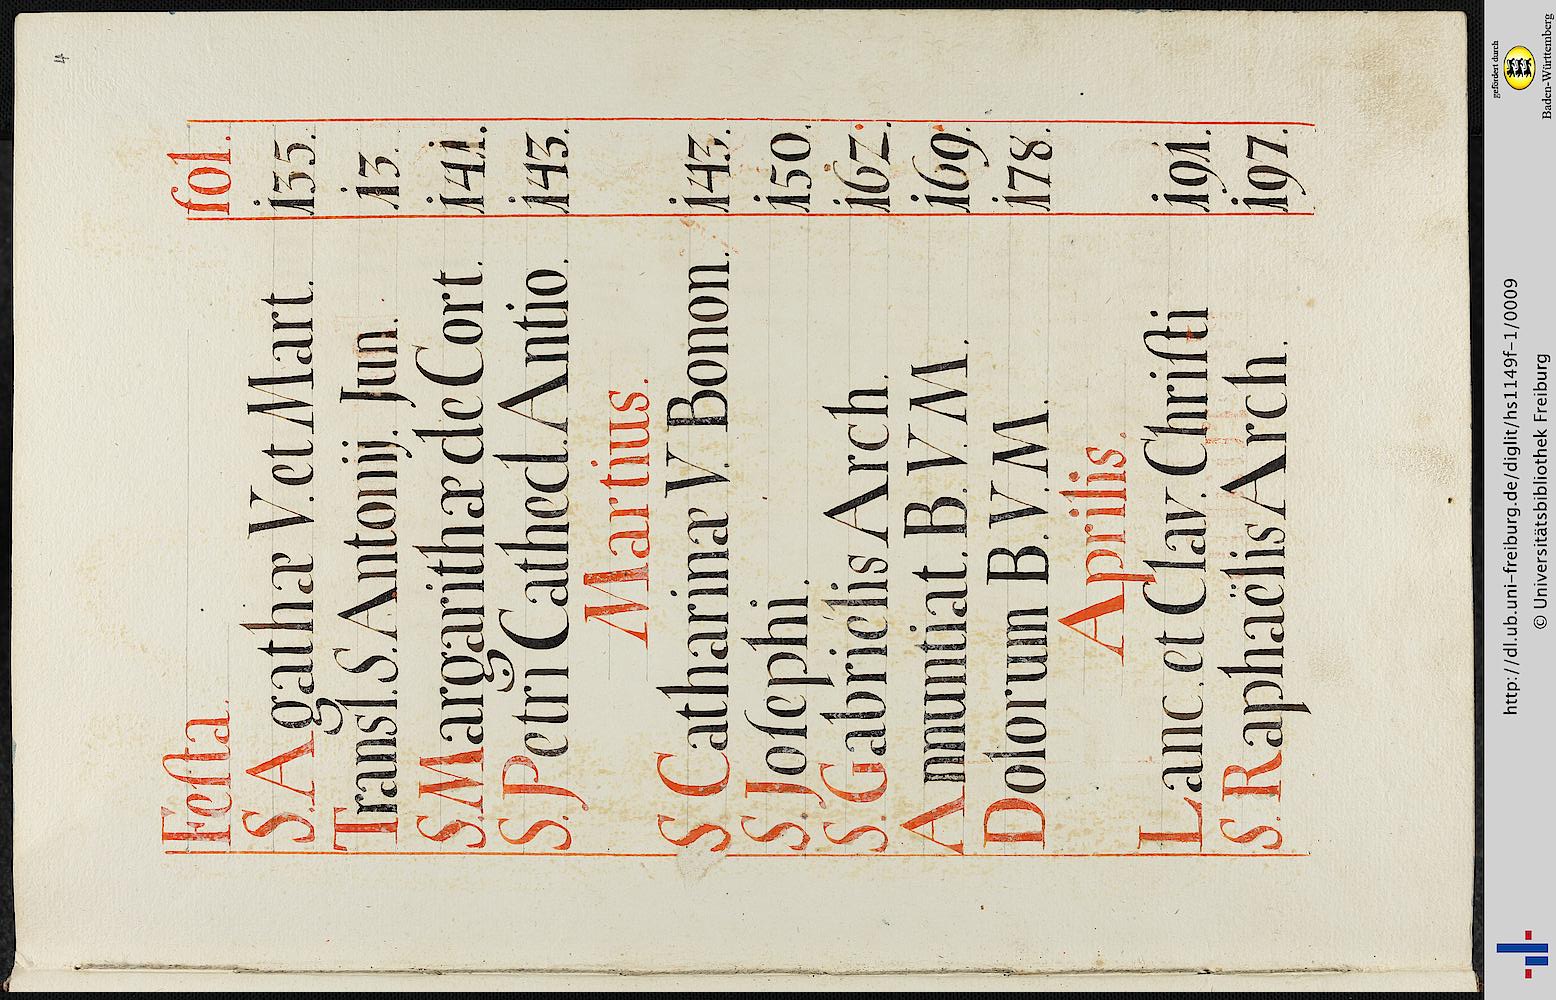 4
Festa. fol.
S. Agathæ V. et Mart. 135.
Transl. S. Antonij. Jun. 13.
S. Margarithæ de Cort. 141.
S. Petri Cathed. Antio. 143.
Martius.
S Catharinæ V. Bonon. 143.
S. Josephi. 150.
S. Gabrielis Arch. 167.
Annuntiat. B. V. M. 169.
Dolorum B. V. M. 178.
Aprilis.
Lanc. et Clav. Christi 191.
S. Raphaëlis Arch. 197.
http://dl.ub.uni-freiburg.de/diglit/hs1149f-1/0009
© Universitätsbibliothek Freiburg
gefördert durch
Baden-Württemberg